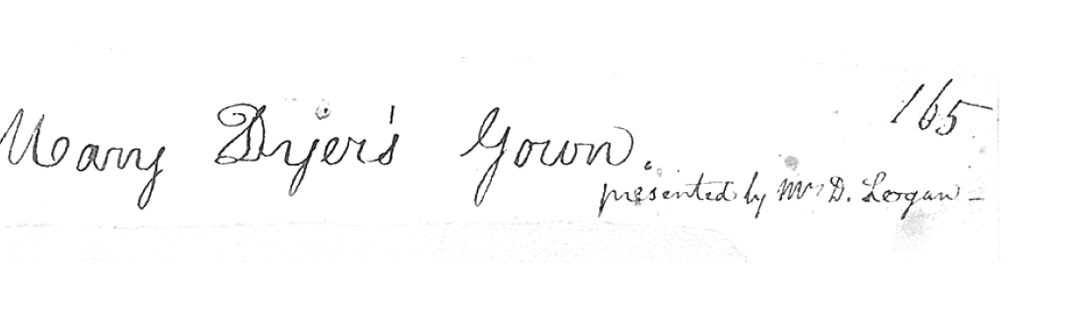 165
Mary Dyer's Gown.
presented by Mrs D. Logan -